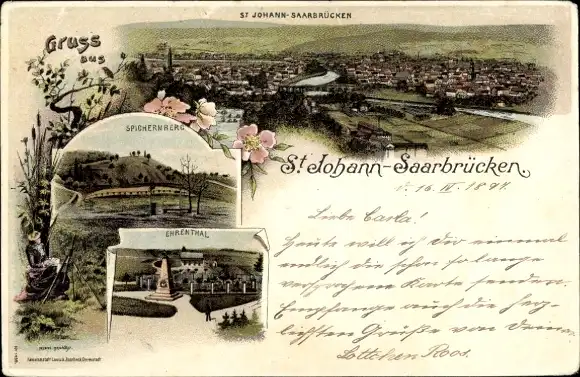 ST JOHANN-SAARBRÜCKEN
Gruss
aus
SPICHERNBERG
St Johann-Saarbrücken,
d. 16. IV. 1897.
EHRENTHAL
Liebe Carla!
Heute will ich Dir einmal
endlich die schon so lange
versprochene Karte senden.
Empfange auch die herz-
lichsten Grüße von Deiner
Lottchen Roos.